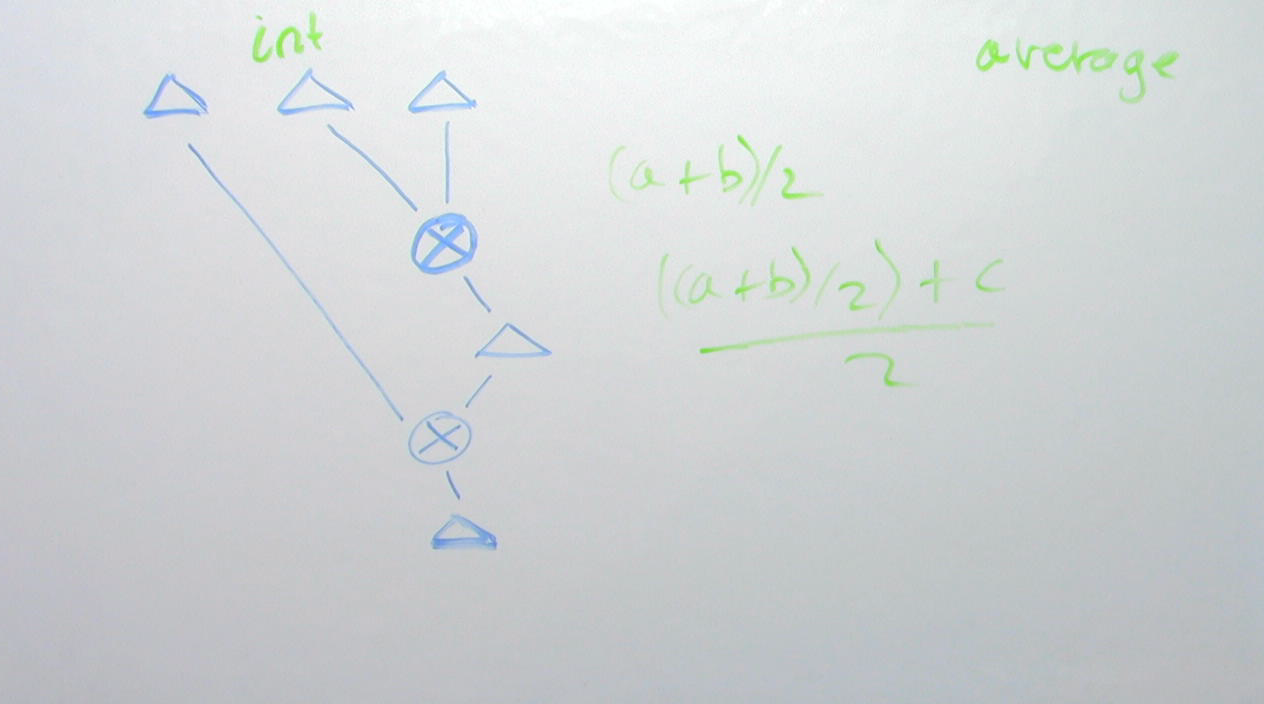 int
average
(a+b)/2
((a+b)/2)+c
2